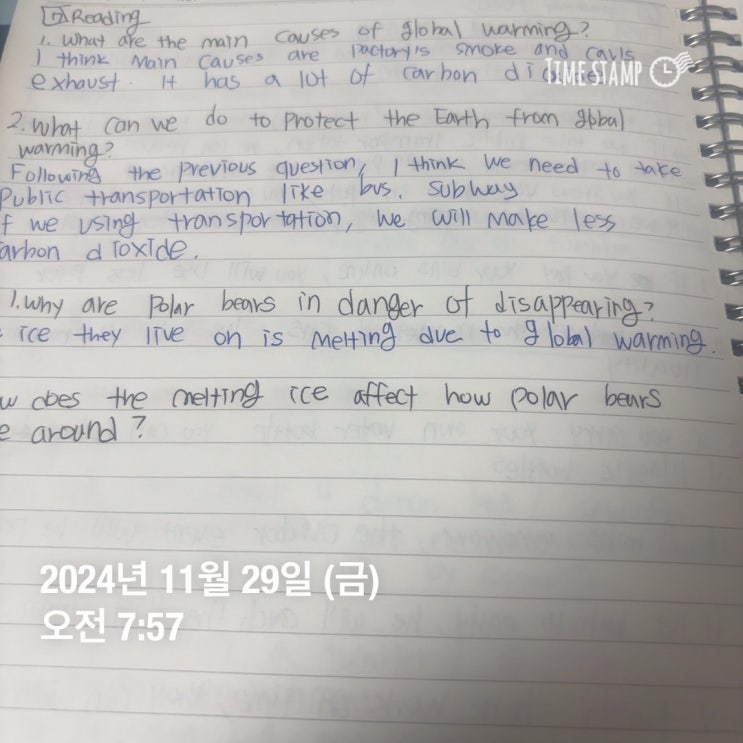 Reading
1. What are the main causes of global warming?
I think Main Causes are factory's smoke and car's
TIMESTAMP
exhaust. It has a lot of carbon
2. What can we do to Protect the Earth from global
warming?
Following the previous question, I think we need to take
Public transportation like bus. subway
f we using transportation, we will make less
arbon dioxide.
1. why are Polar bears in danger of disappearing?
ice they live on is Melting due to global warming.
w does the melting ice affect how polar bears
e around?
2024년 11월 29일 (금)
오전 7:57